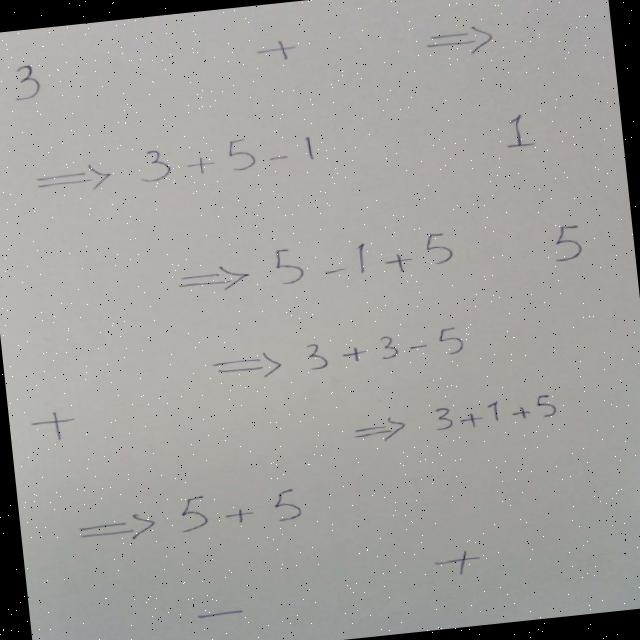 3 + ⇒
⇒ 3 + 5 - 1 1
⇒ 5 - 1 + 5 5
⇒ 3 + 3 - 5
+ ⇒ 3 + 1 + 5
⇒ 5 + 5
+
-